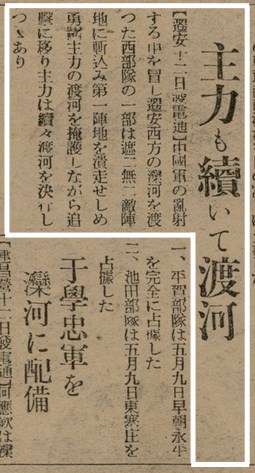 主力も續いて渡河
【遷安十二日發電通】中國軍の亂射
する中を冒し遷安西方の灤河を渡
つた西部隊の一部は遮二無二敵陣
地に斬込み第一陣地を潰走せしめ
勇躍主力の渡河を掩護しながら追
擊に移り主力は續々渡河を決行し
つゝあり
一、平賀部隊は五月九日早朝永平
を完全に占據した
二、池田部隊は五月九日東寨庄を
占據した
于學忠軍を
灤河に配備
【建昌營十二日發電通】何應欽は灤